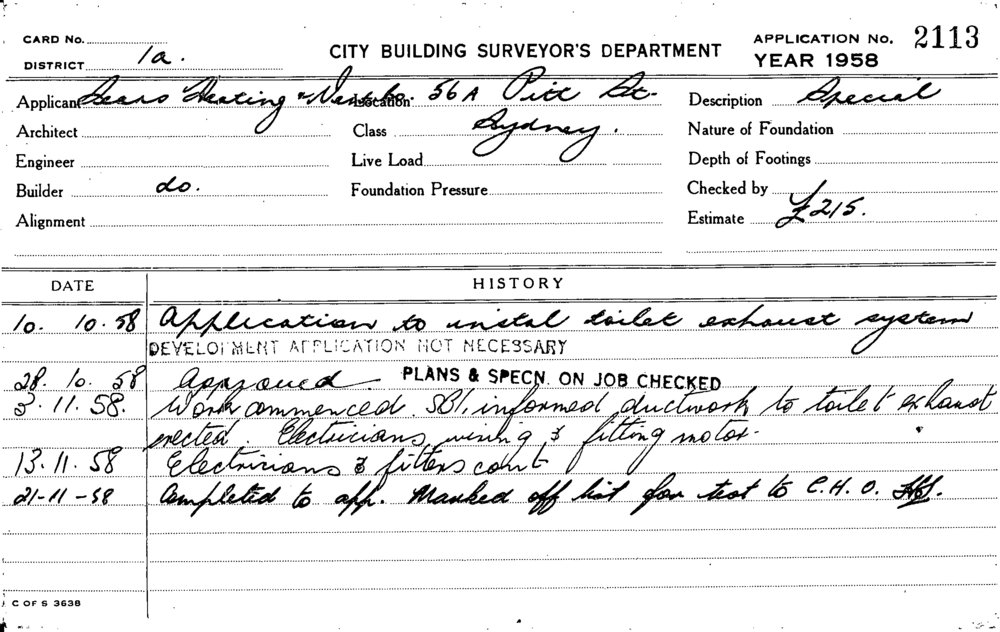 CARD No.
DISTRICT 1a.
CITY BUILDING SURVEYOR'S DEPARTMENT
APPLICATION No. 2113
YEAR 1958
Applicant Sears Heating & Location 56A Pitt St.
Description Special
Architect
Class Sydney.
Nature of Foundation
Engineer
Live Load
Depth of Footings
Builder do.
Foundation Pressure
Checked by
Alignment
Estimate £215.
DATE HISTORY
10. 10. 58 Application to instal toilet exhaust system
DEVELOPMENT APPLICATION NOT NECESSARY
28. 10. 58 Approved. PLANS & SPECN. ON JOB CHECKED
3. 11. 58. Work commenced. informed ductwork to toilet exhaust
erected. Electricians, wiring & fitting motor.
13. 11. 58 Electricians & fitters cont
21-11-58 Completed to app. Marked off list for test to C.H.O.
C OF S 3638